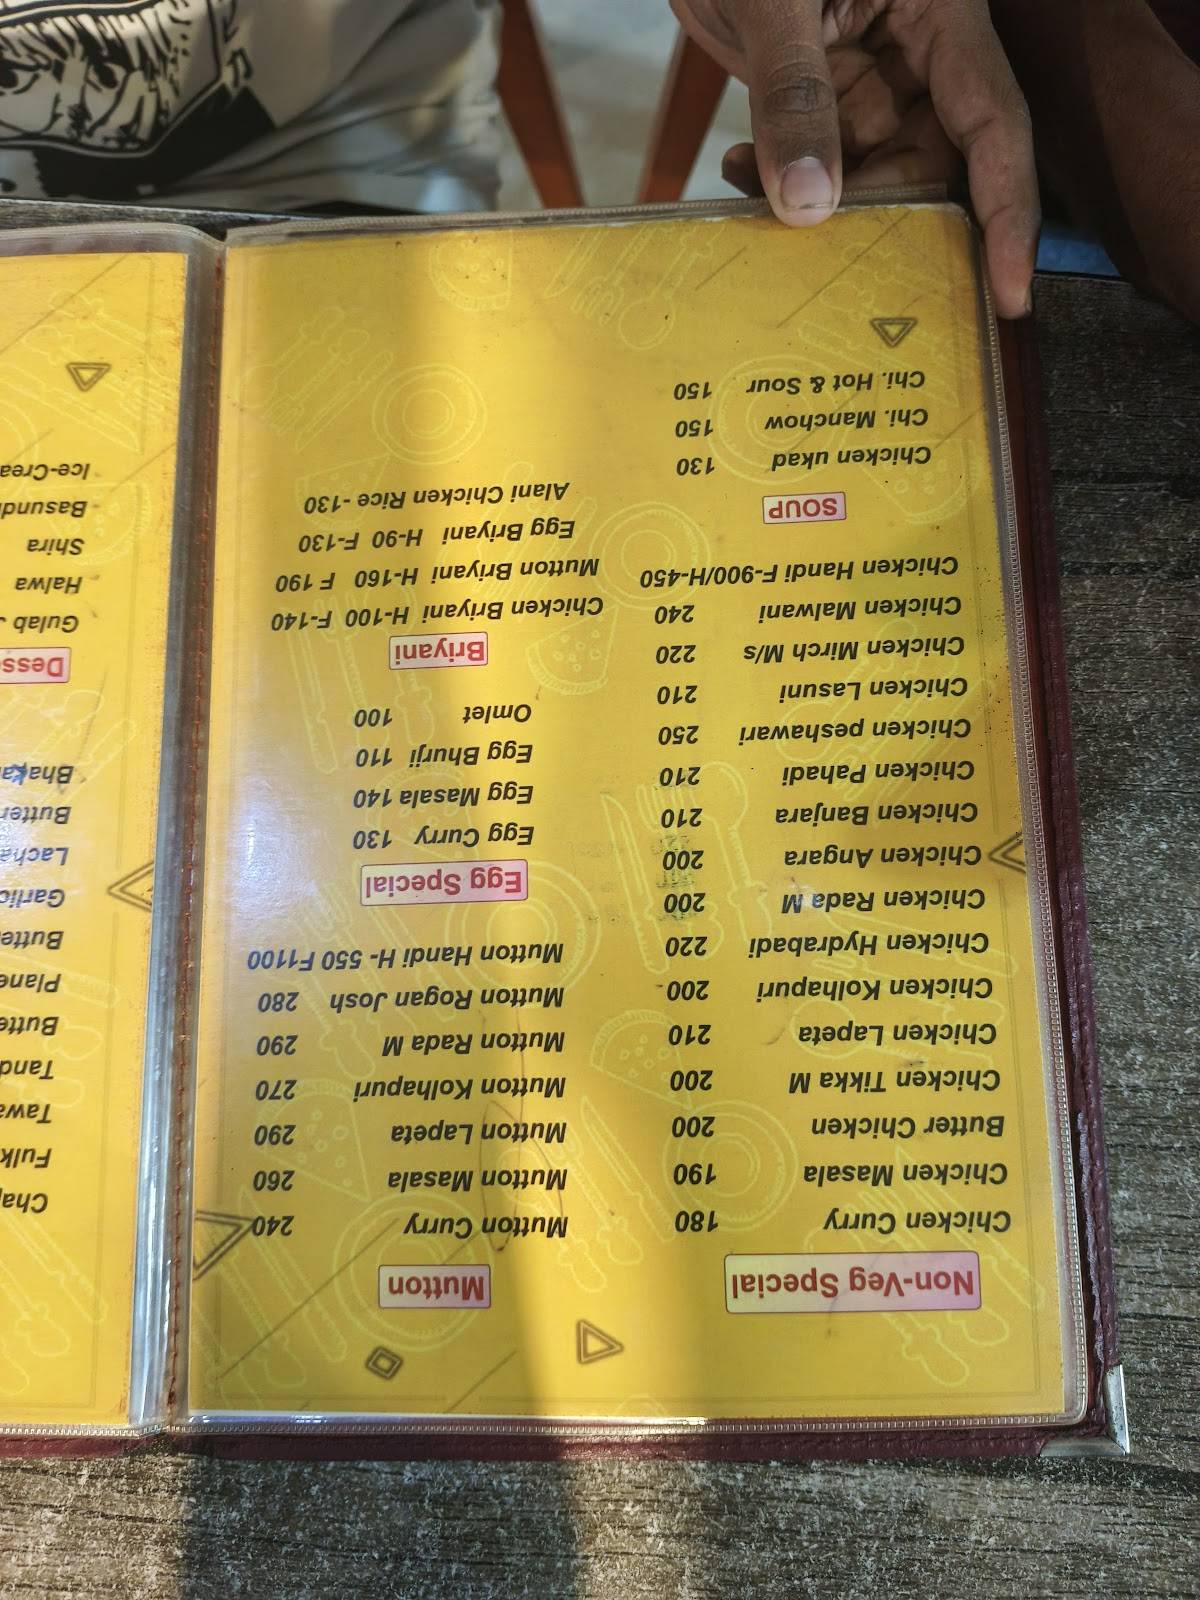 Non-Veg Special
Chicken Curry 180
Chicken Masala 190
Butter Chicken 200
Chicken Tikka M 200
Chicken Lapeta 210
Chicken Kolhapuri 200
Chicken Hydrabadi 220
Chicken Rada M 200
Chicken Angara 200
Chicken Banjara 210
Chicken Pahadi 210
Chicken peshawari 250
Chicken Lasuni 210
Chicken Mirch M/s 220
Chicken Malwani 240
Chicken Handi F-900/H-450
SOUP
Chicken ukad 130
Chi. Manchow 150
Chi. Hot & Sour 150
Mutton
Mutton Curry 240
Mutton Masala 260
Mutton Lapeta 290
Mutton Kolhapuri 270
Mutton Rada M 290
Mutton Rogan Josh 280
Mutton Handi H- 550 F1100
Egg Special
Egg Curry 130
Egg Masala 140
Egg Bhurji 110
Omlet 100
Briyani
Chicken Briyani H-100 F-140
Mutton Briyani H-160 F 190
Egg Briyani H-90 F-130
Alani Chicken Rice -130
Chap
Fulk
Tawa
Tand
Butte
Plane
Butter
Garlic
Lacha
Butter
Bhaka
Desse
Gulab J
Halwa
Shira
Basundi
Ice-Crea